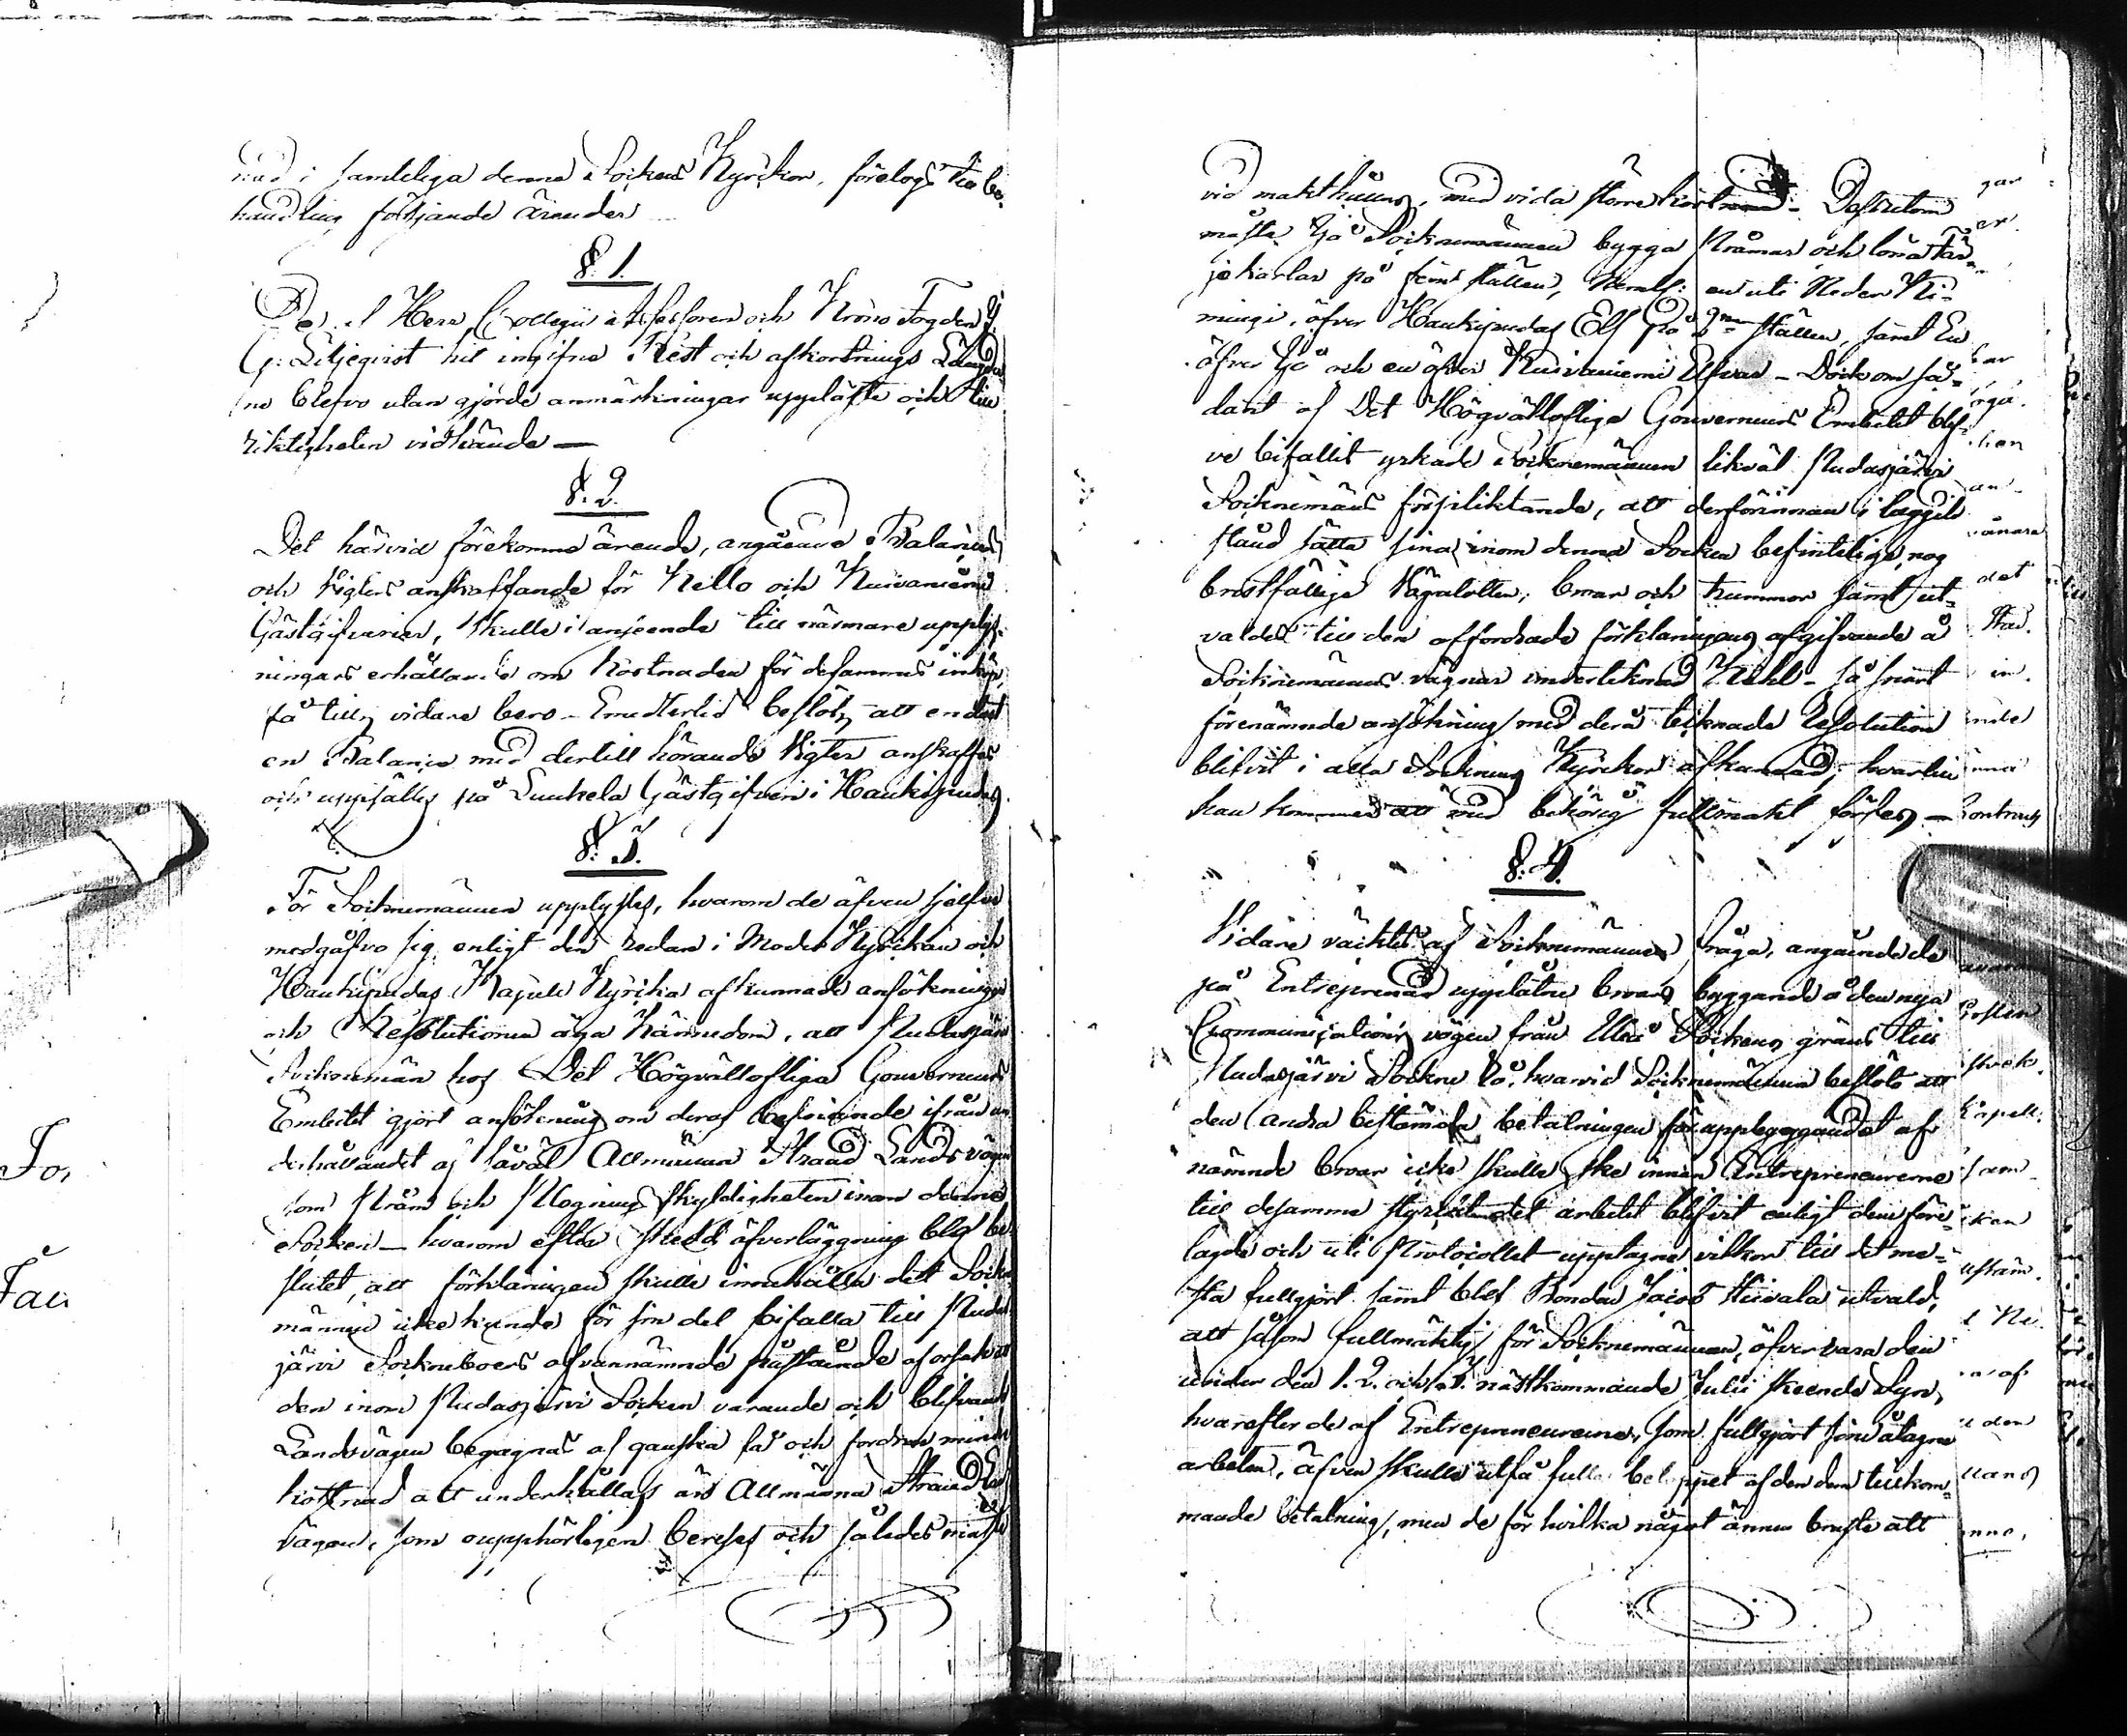 nad i samteliga denna Sockens Kyrckor, företogs till be-
handling följande ärender
§. 1.
De af Herr Collegii Assessoren och Krono Fogden J.
G: Liljeqvist hit ingifne Rest och afkortnings Längder
ne blefvo utan gjorde anmärkningar uppläste och till
riktigheten vidkände —
§. 2.
Det härvid förekomne ärende, angående Balancers
och Vigters anskaffande för Kello och Kuivaniemi
Gästgifverier, skulle i anseende till närmare upplys-
ningars erhållande om kostnaden för desammas inköp,
få tills vidare bero – Emedlertid beslöts att endast
en Balance med dertill hörande Vigter anskaffas
och uppsättes på Luukela Gästgifveri i Haukipudas
§. 3.
För Socknemännen upplystes, hvarom de äfven sjelfve
medgåfvo sig enligt den redan i Moder Kyrckan och
Haukipudas Kapell Kyrcka afkunnade ansökningen
och Resolutionen äga kännedom, att Pudasjärvi
Socknemän hos Det Högvällofliga Gouverneurs
Embetet gjort ansökning om deras befriande ifrån un-
derhållandet af såväl Allmänna Strand Landsvägen
som Pråm och Plognings skyldigheten inom denna
Socken — hvarom efter skedd öfverläggning blef be-
slutet, att förklaringen skulle innehålla det Sockne
männen icke kunde för sin del bifalla till Pudas
järvi Sockneboers ofvannämnde påstående af orsak att
den inom Pudasjärvi Socken varande och blifvande
Landsvägen begagnas af ganska få och fordrar mindre
kostnad att underhållas än Allmänna Strand Lands
vägen, som oupphörligen bereses och således måste
vid makthållas, med vida större kostnad – Dessutom
måste Ijo Socknemännen bygga Pråmar och löna Fär-
jekarlar på fem ställen, Nemlig: en uti Neder Ki-
mingi, öfver Haukipudas Elf på 2ne ställen, samt En
öfver Ijo och en öfver Kuivaniemi Elfvar – Dock om så-
dant af Det Högvälloflige Gouverneurs Embetet blef-
ve bifallit yrkade Socknemännen likväl Pudasjärvi
Socknemäns förpliktande, att derförinnan i laggilt
stånd sätta sina inom denna Socken befintelige, nog
bristfällige Vägalotter, broar och trummor samt ut-
valdes till den affordrade förklaringens afgifvande å
Socknemännens vägnar undertecknad – så snart
förenämnde ansökning med derå tecknade Resolution
blifvit i alla Socknens Kyrckor afkunnad; hvartill
han kommer att med behörig fullmakt förses —
§. 4.
Vidare väcktes af Socknemännen fråga, angående de
på Entreprenad upplåtne broars byggande å den nya
Communications vägen från Uleå Sockens gräns till
Pudasjärvi Sockne Rå, hvarvid Socknemännen beslöto att
den andra bestämda betalningen för uppbyggandet af
nämnde broar icke skulle ske innan Entrepreneurerne
till desamma styrkt det arbetet blifvit enligt den före-
lagde och uti Protocollet upptagne vilkor till det me-
sta fullgjort samt blef Bonden Jacob utvald,
att såsom fullmäktig för Socknemännen, öfvervara den
under den 1. 2. och 3. nästkommande Julii skeende Syn,
hvarefter de af Entrepreneurerne, som fullgjort sine åtagne
arbeten, äfven skulle utfå fulla beloppet af den dem tillkom-
mande betalning, men de för hvilka något ännu bruste att